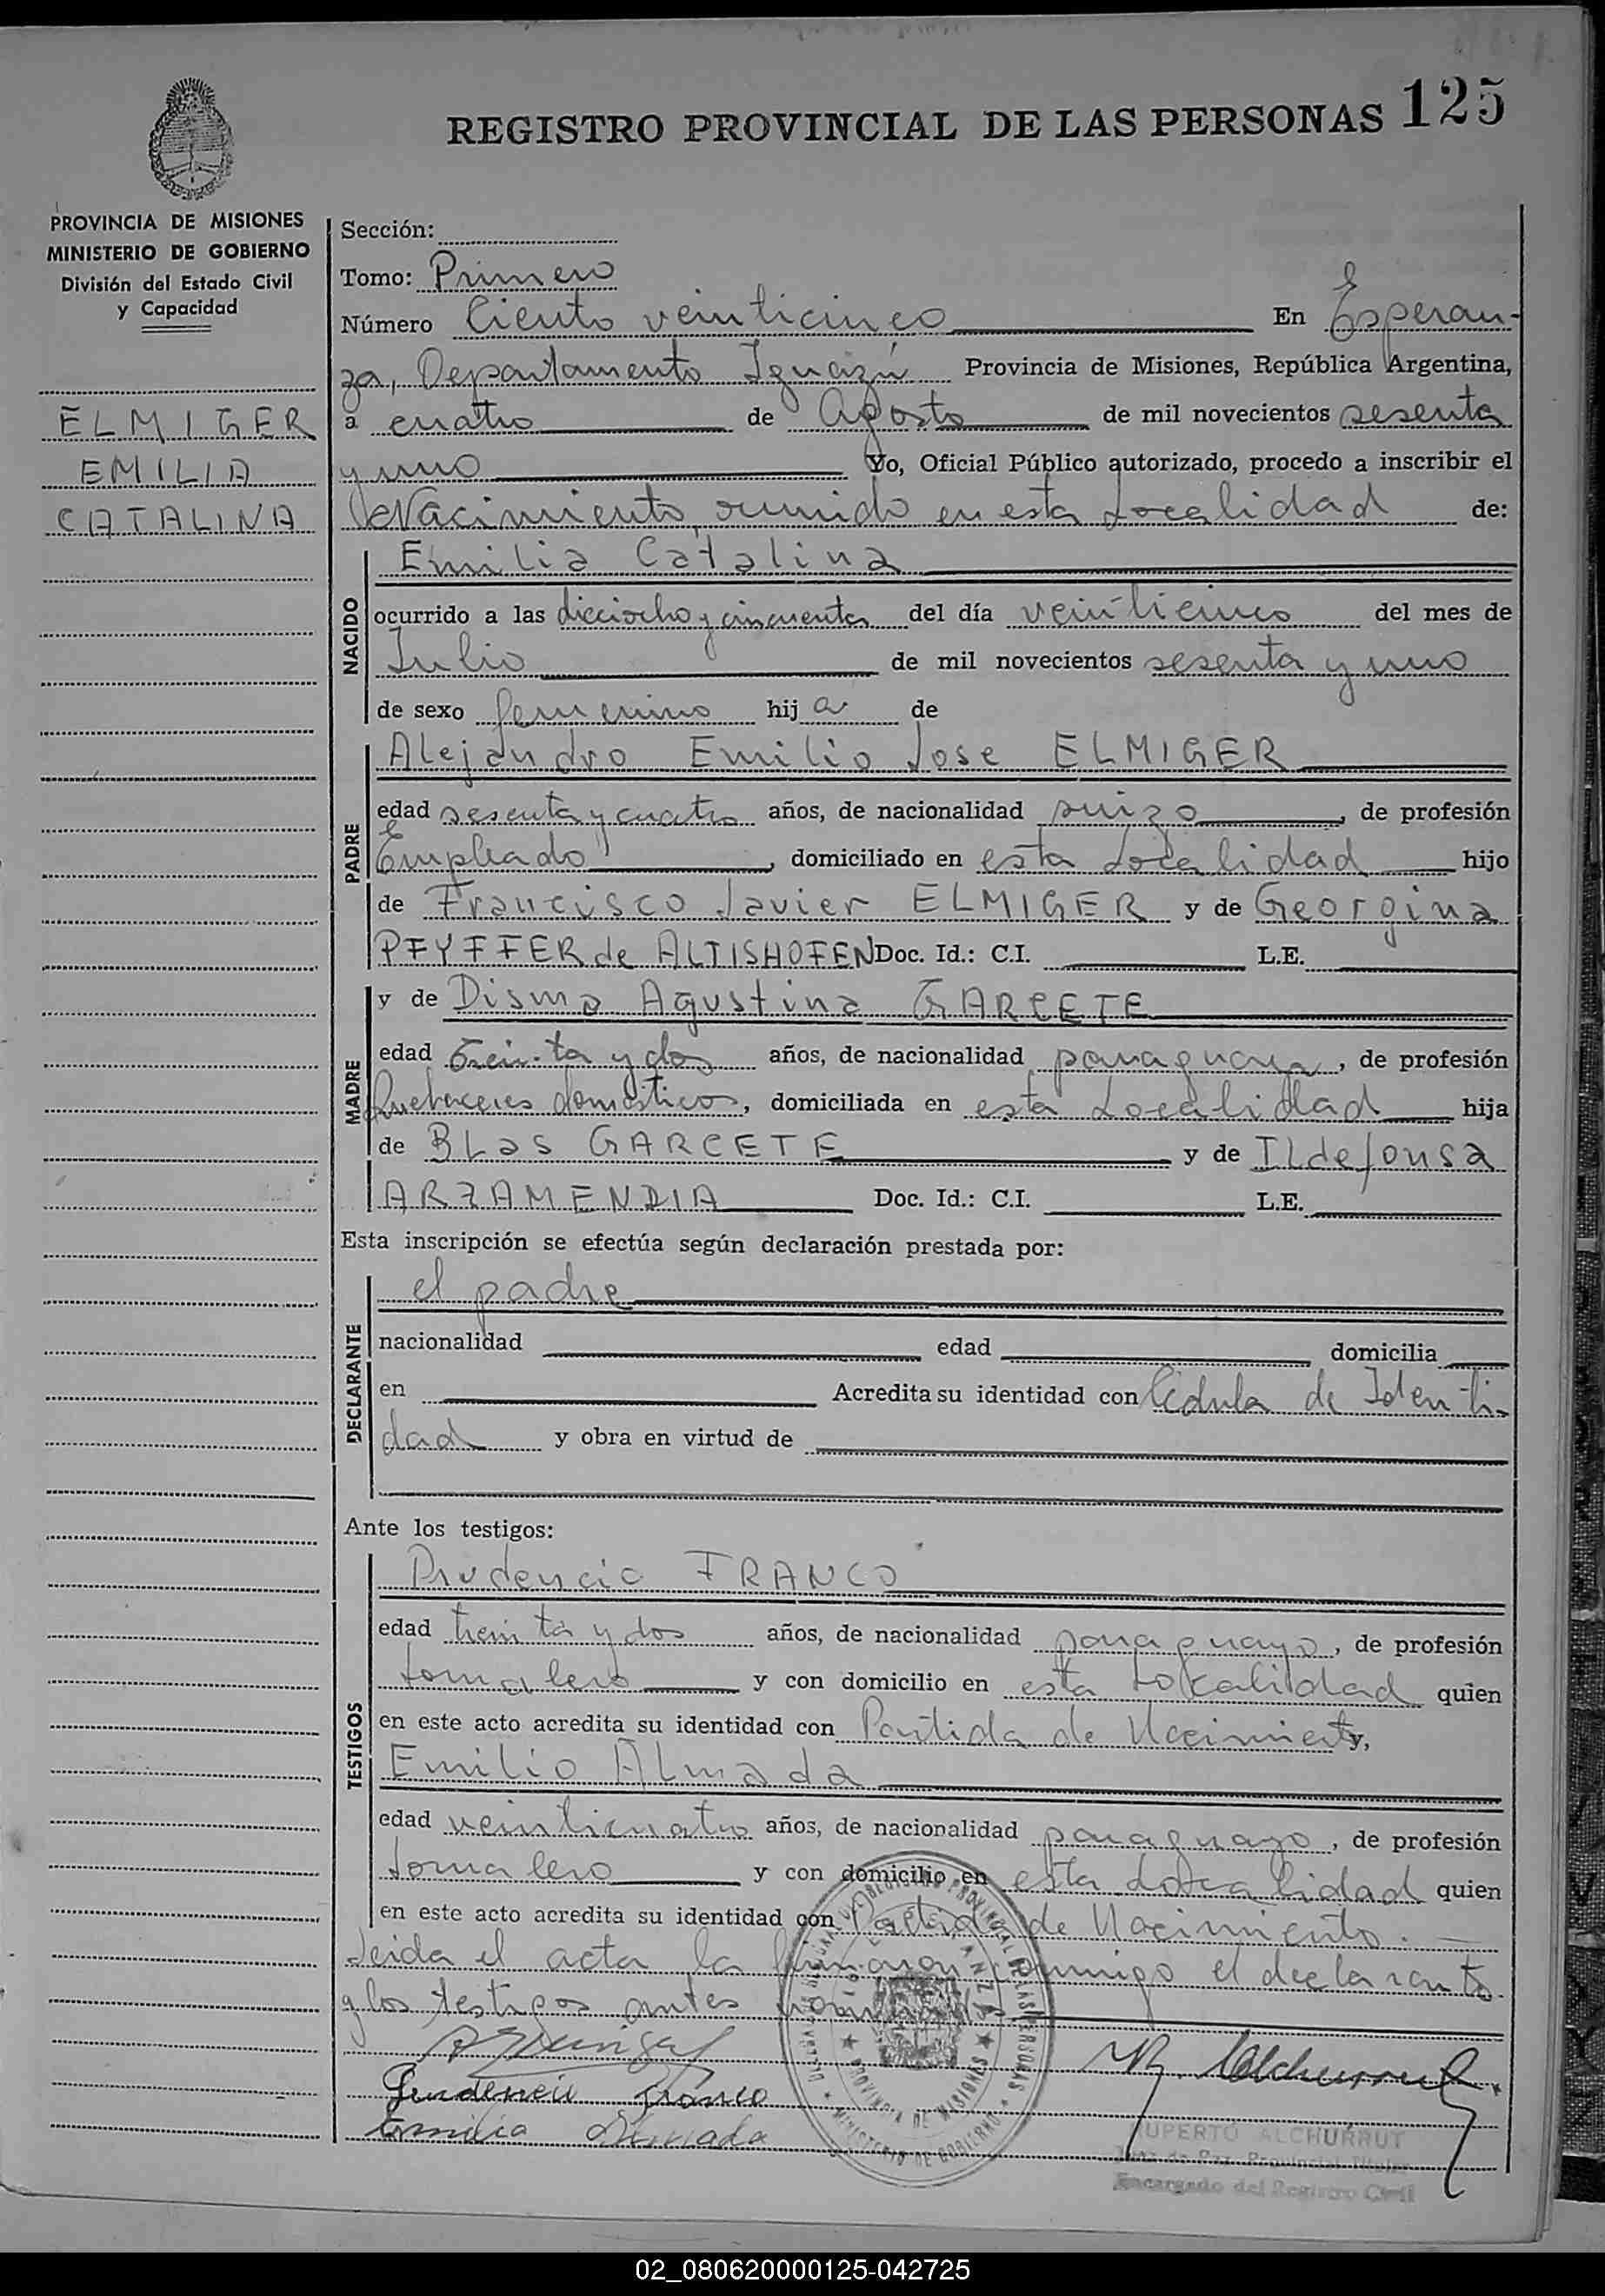 REGISTRO PROVINCIAL DE LAS PERSONAS 125
PROVINCIA DE MISIONES
MINISTERIO DE GOBIERNO
División del Estado Civil
y Capacidad
ELMIGER
EMILIA
CATALINA
Sección:
Tomo: Primero
Número Ciento veinticinco En Esperan-
za, Departamento Iguazú Provincia de Misiones, República Argentina,
a cuatro de Agosto de mil novecientos sesenta
y uno Yo, Oficial Público autorizado, procedo a inscribir el
Nacimiento, en esta Localidad de:
Emilia Catalina
NACIDO
ocurrido a las dieciocho y cincuenta del día veinticinco del mes de
Julio de mil novecientos sesenta y uno
de sexo femenino hija de
Alejandro Emilio Jose ELMIGER
PADRE
edad sesenta y cuatro años, de nacionalidad suizo, de profesión
Empleado, domiciliado en esta Localidad hijo
de Francisco Javier ELMIGER y de Georgina
PFYFFER de ALTISHOFEN Doc. Id.: C.I. L.E.
y de Disma Agustina GARCETE
MADRE
edad treinta y dos años, de nacionalidad paraguaya, de profesión
Quehaceres domésticos, domiciliada en esta Localidad hija
de BLas GARCETE y de ILdefonsa
ARZAMENDIA Doc. Id.: C.I. L.E.
Esta inscripción se efectúa según declaración prestada por:
el padre
DECLARANTE
nacionalidad edad domicilia
en Acredita su identidad con Cédula de Identi-
dad y obra en virtud de
Ante los testigos:
Prudencio FRANCO
TESTIGOS
edad treinta y dos años, de nacionalidad paraguayo, de profesión
Jornalero y con domicilio en esta Localidad quien
en este acto acredita su identidad con Partida de Nacimiento y,
Emilio ALmada
edad veinticuatro años, de nacionalidad paraguayo, de profesión
Jornalero y con domicilio en esta Localidad quien
en este acto acredita su identidad con Partida de Nacimiento.
Leida el acta la firmaron conmigo el declarante
y los testigos antes nombrados
Prudencio Franco
Emilio Almada
PROVINCIA DE MISIONES
MINISTERIO DE GOBIERNO
RUPERTO ALCHURRUT
Juez de Paz Provincial Titular
Encargado del Registro Civil
02_080620000125-042725